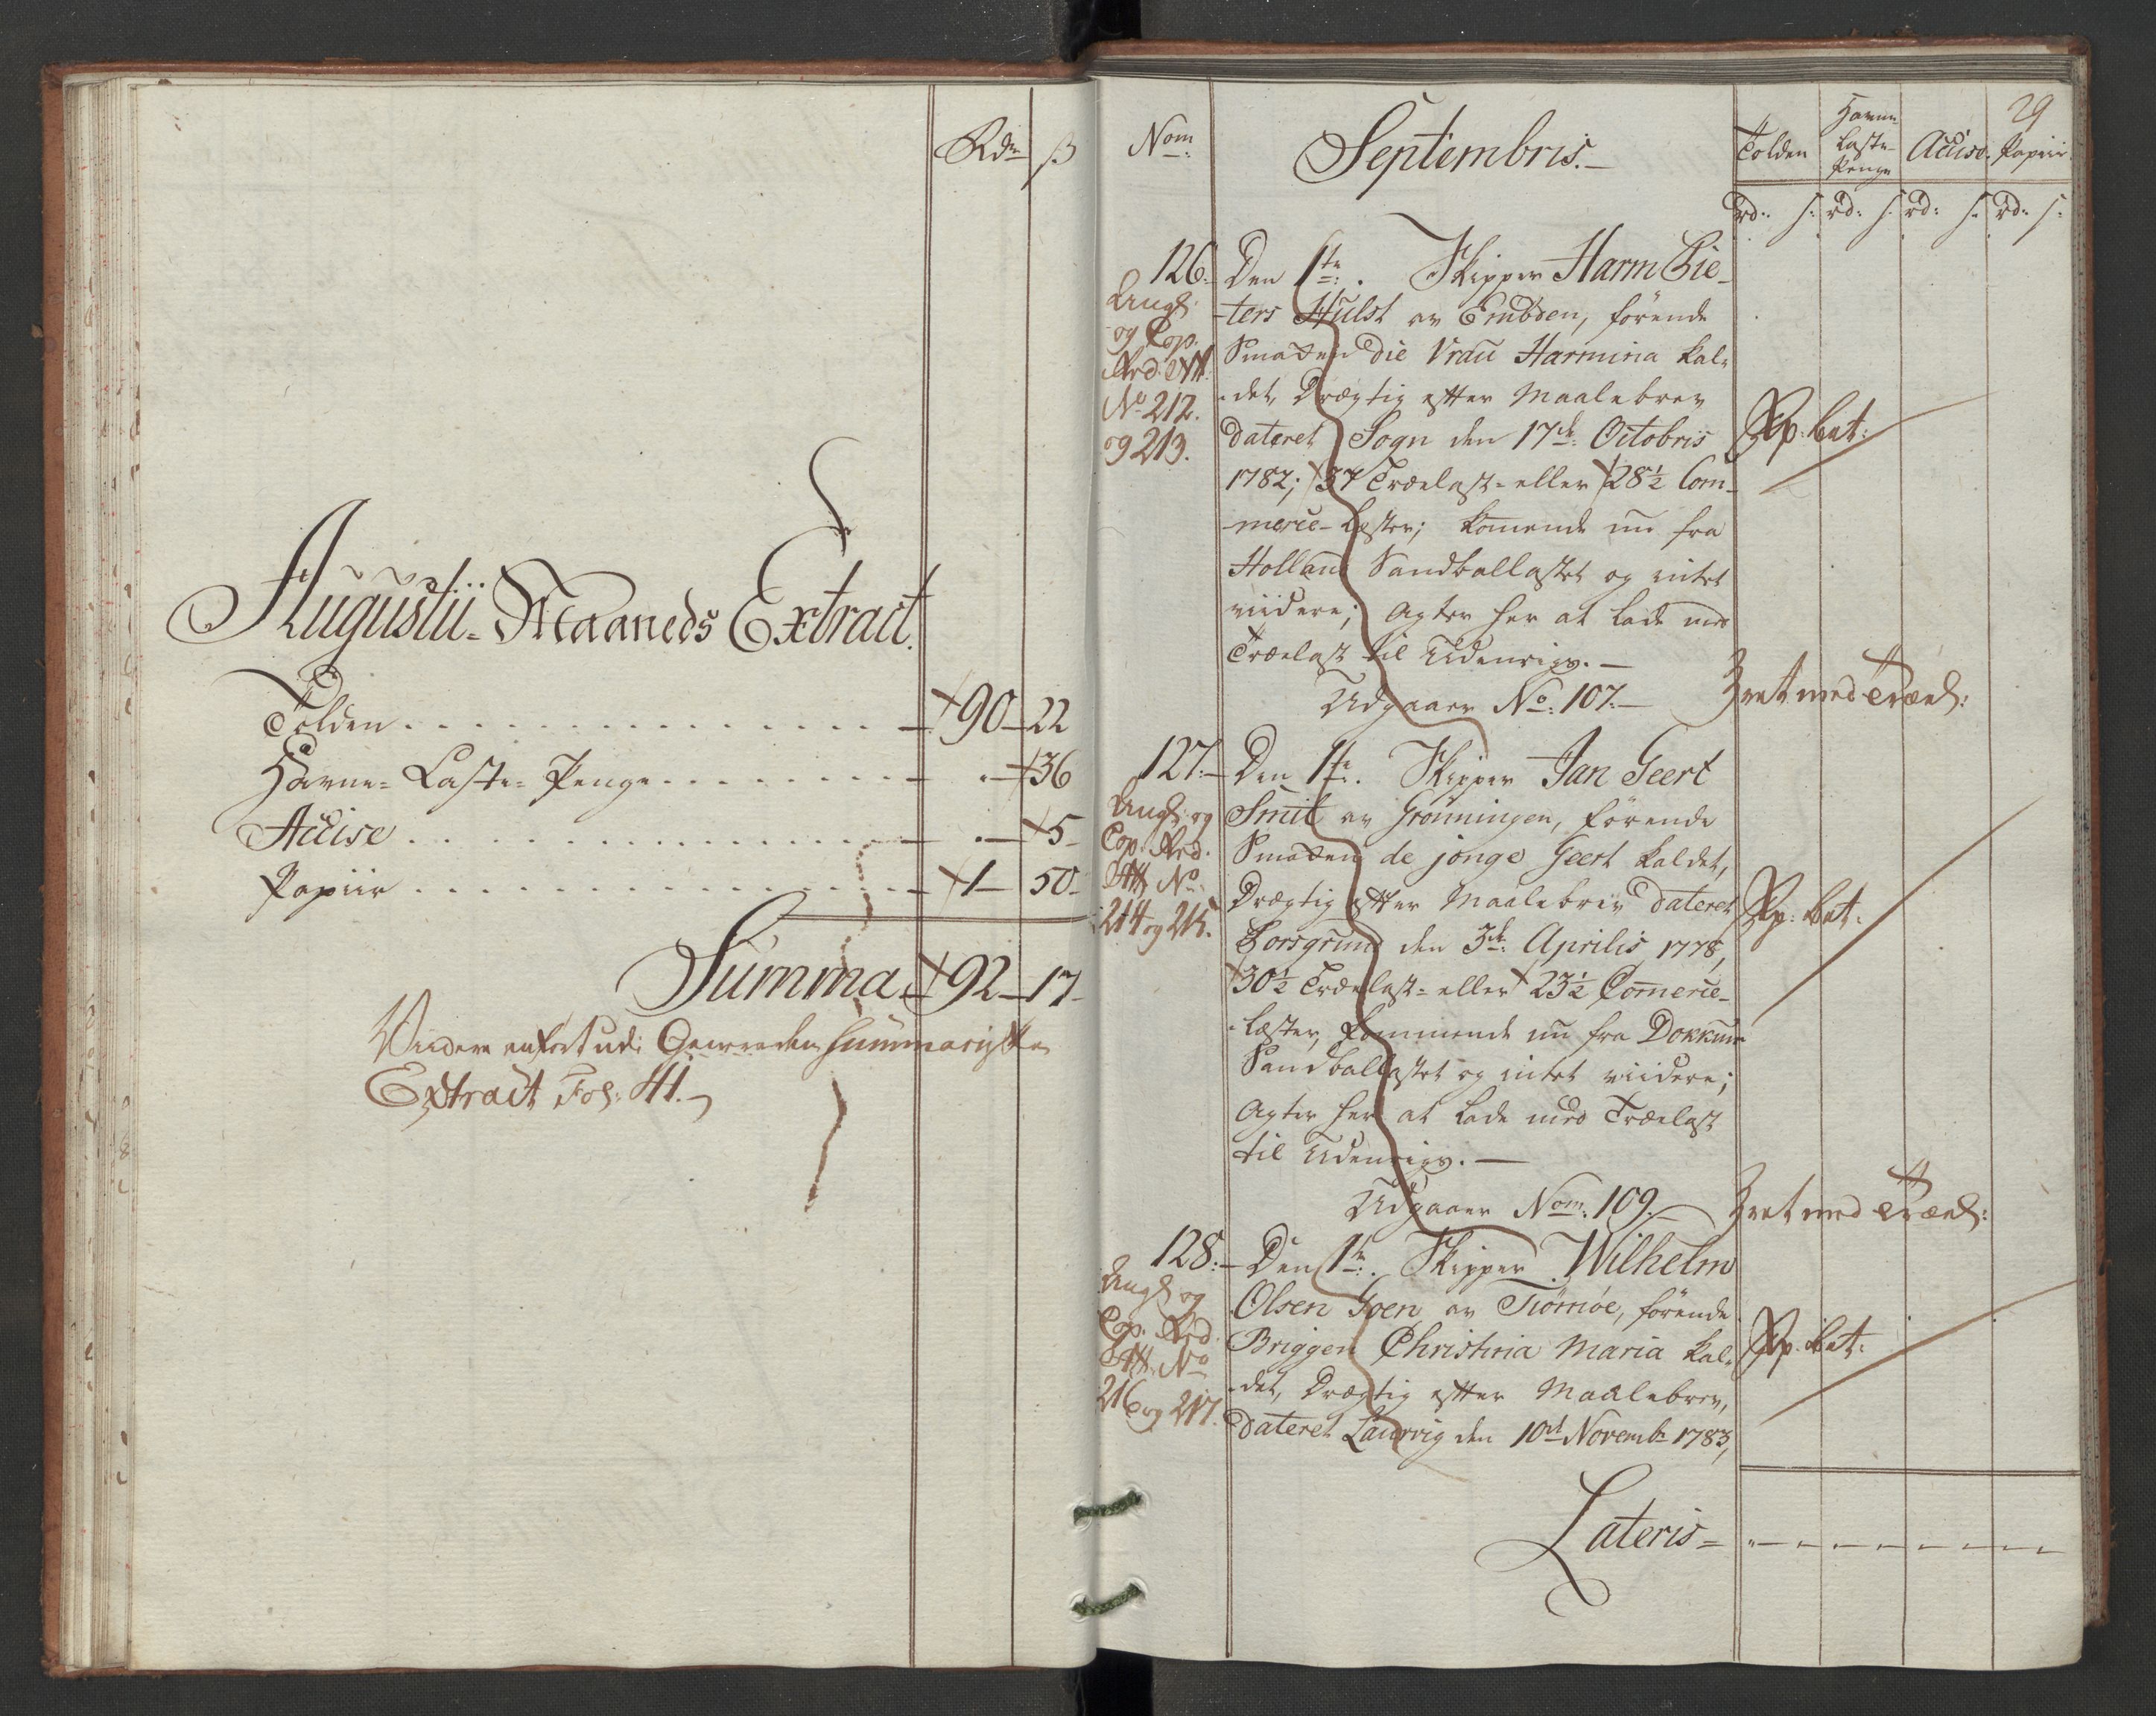 Rdr ß
Augustii Maaneds Extract.
Tolden 90 22
Havne-Laste-Penge 36
Accise 5
Papiir 1 50
Summa 92 17
Viidere anført udi Qvartalen Summariske
Extract Fol: 41.
29
Nom: Septembris. Tolden Havne-Laste-Penge Accise. Papiir
rd: s: rd: s: rd: s: rd: s:
126. Den 1te: Skipper Harm Pie-
ters Hulst av Embden, førende
Smakken die Vrau Harmina kal-
det, Drægtig efter Maalebrev
dateret Sogn den 17de: Octobris
1782; 37 Trælast- eller 28½ Com-
merce-Læster; kommende nu fra
Holland Sandballastet og intet
viidere; agter her at lade med
Trælast til Udenrigs.
Udgaaer No: 107.
og Cop.
No 212.
og 213.
Pp: bet:
127. Den 1te. Skipper Jan Geert
Smit av Grønningen, førende
Smakken de jonge Geert kaldet,
Drægtig efter Maalebrev dateret
Porsgrund den 3de: Aprilis 1778,
30½ Trælast- eller 23½ Comerce-
læster, kommende nu fra Dokkum
Sandballastet og intet viidere;
Agter her at lade med Trælast
til Udenrigs.
Udgaaer Nom: 109.
214 og 215.
Pp: bet:
128. Den 1te. Skipper Wilhelm
Olsen Goen av Tiømøe, førende
Briggen Christina Maria kal-
det, Drægtig efter Maalebrev,
dateret Laurvig den 10de Novembr 1783,
216 og 217.
Pp: bet:
Lateris